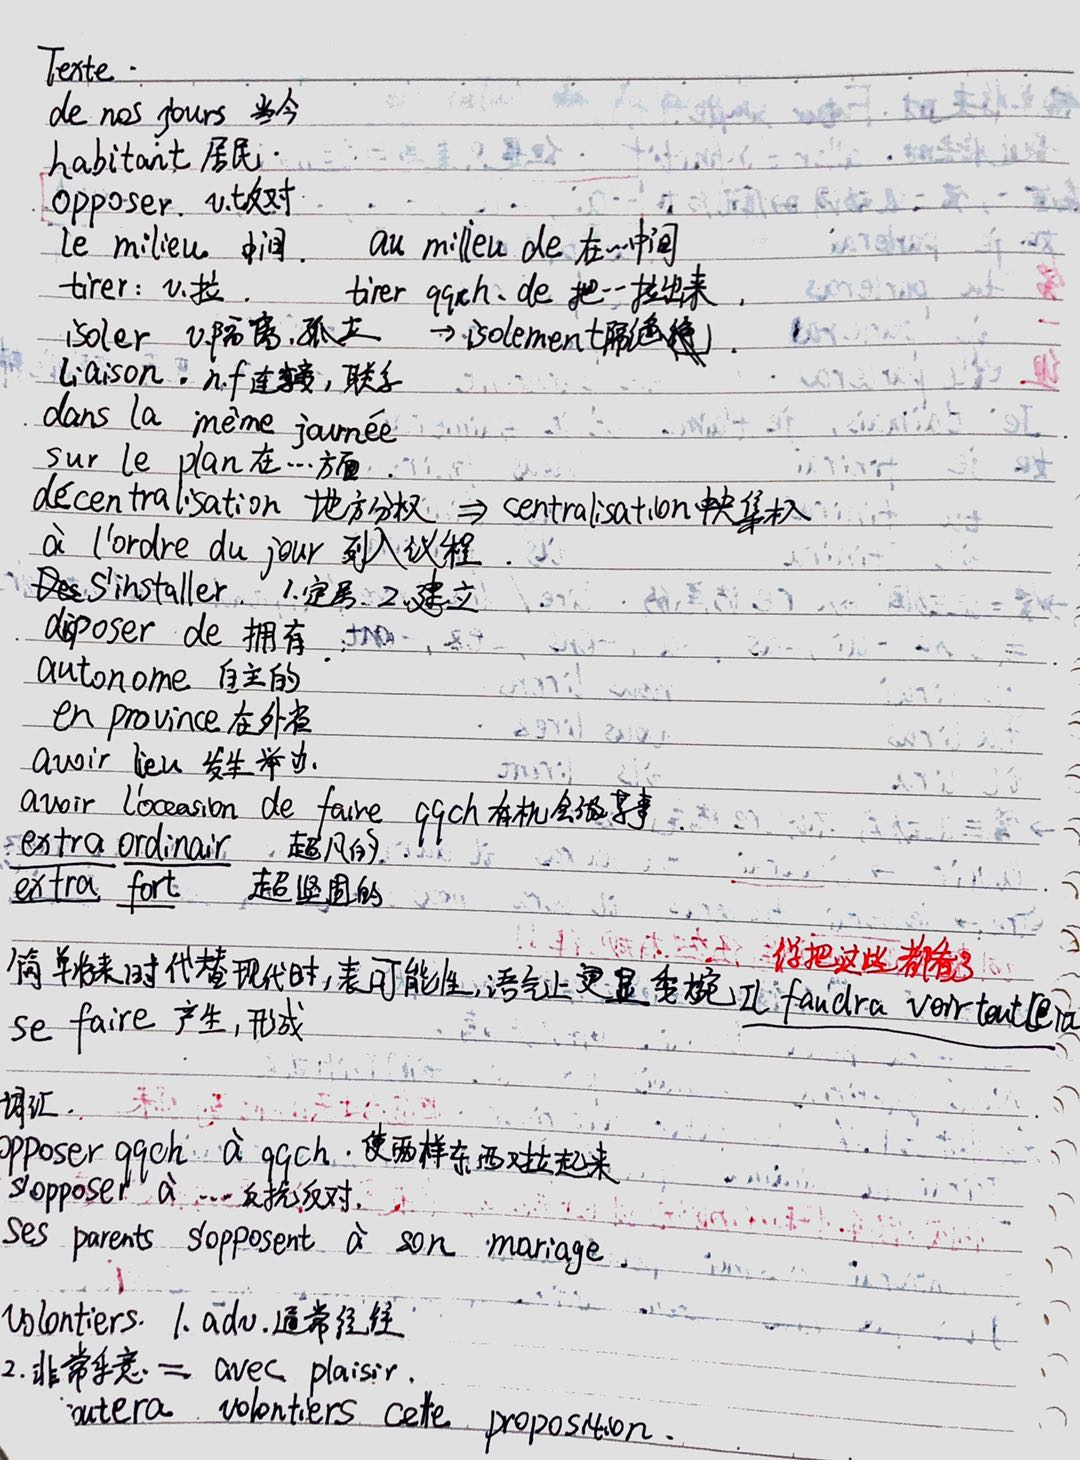 Texte.
de nos jours 当今
habitant 居民.
opposer. v.t反对
le milieu 中间. au milieu de 在…中间
tirer: v.拉. tirer qqch. de 把…拉出来.
isoler v.隔离.孤立 → isolement 隔绝.
liaison. n.f 连接, 联系
dans la même journée
sur le plan 在…方面.
décentralisation 地方分权 ⇒ centralisation 中央集权
à l'ordre du jour 列入议程.
s'installer. 1.定居. 2.建立
disposer de 拥有
autonome 自主的
en province 在外省
avoir lieu 发生 举办.
avoir l'occasion de faire qqch 有机会做某事.
extra ordinair 超凡的.
extra fort 超坚固的
你把这些都看了
简单将来时代替现代时,表可能性,语气上更显委婉 Il faudra voir tout
se faire 产生,形成
词汇.
opposer qqch à qqch. 使两样东西对拉起来
s'opposer à … 反抗反对.
ses parents s'opposent à son mariage.
volontiers. 1. adv.通常往往
2.非常乐意. = avec plaisir.
volontiers cette proposition.